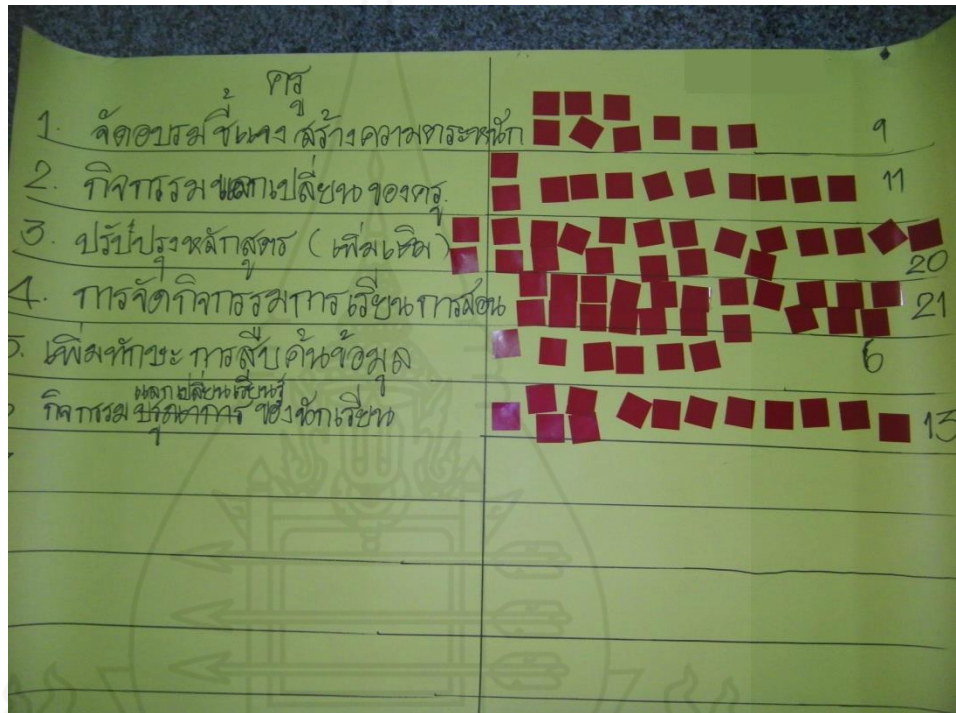 ครู
1. จัดอบรมชี้แจง/สร้างความตระหนัก 9
2. กิจกรรมแลกเปลี่ยนของครู 11
3. ปรับปรุงหลักสูตร (เพิ่มเติม) 20
4. การจัดกิจกรรมการเรียนการสอน 21
5. เพิ่มทักษะการสืบค้นข้อมูล 6
แลกเปลี่ยนเรียนรู้
กิจกรรม ของนักเรียน 13